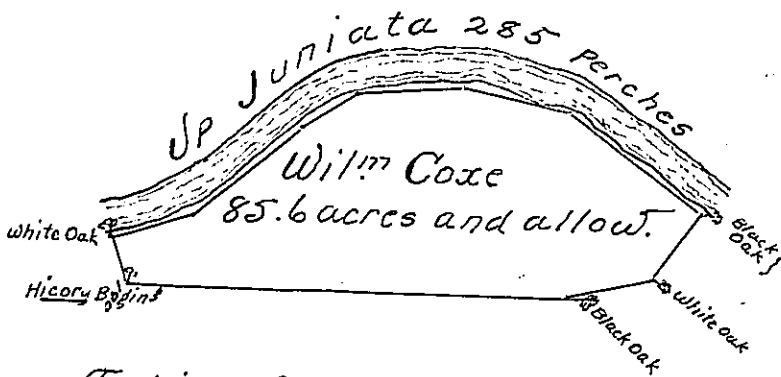 Up Juniata 285 perches
Wil.m Coxe
85.6 acres and allow.
White Oak
Black Oak
Hicory Begins
White Oak
Black Oak